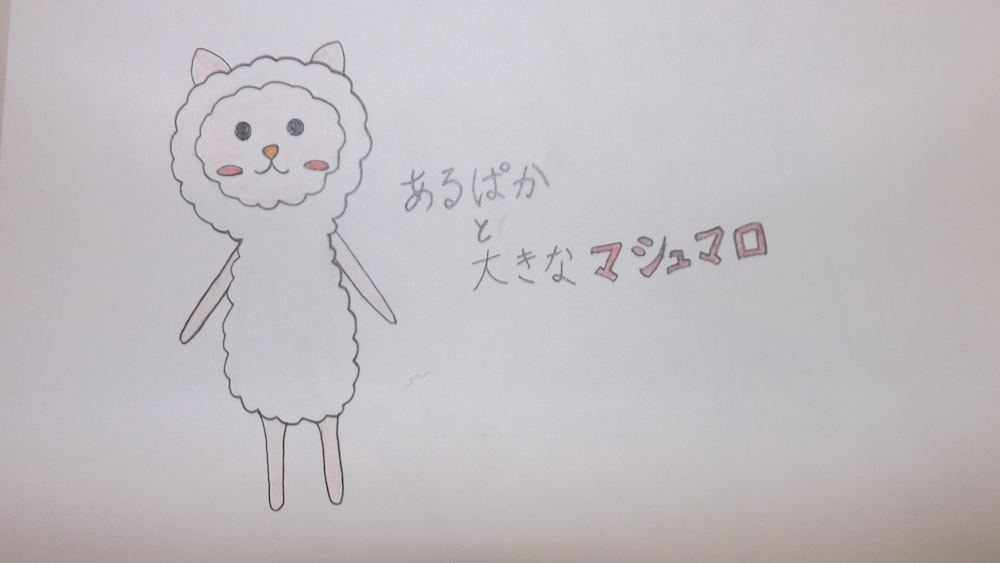 あるぱか
と
大きなマシュマロ